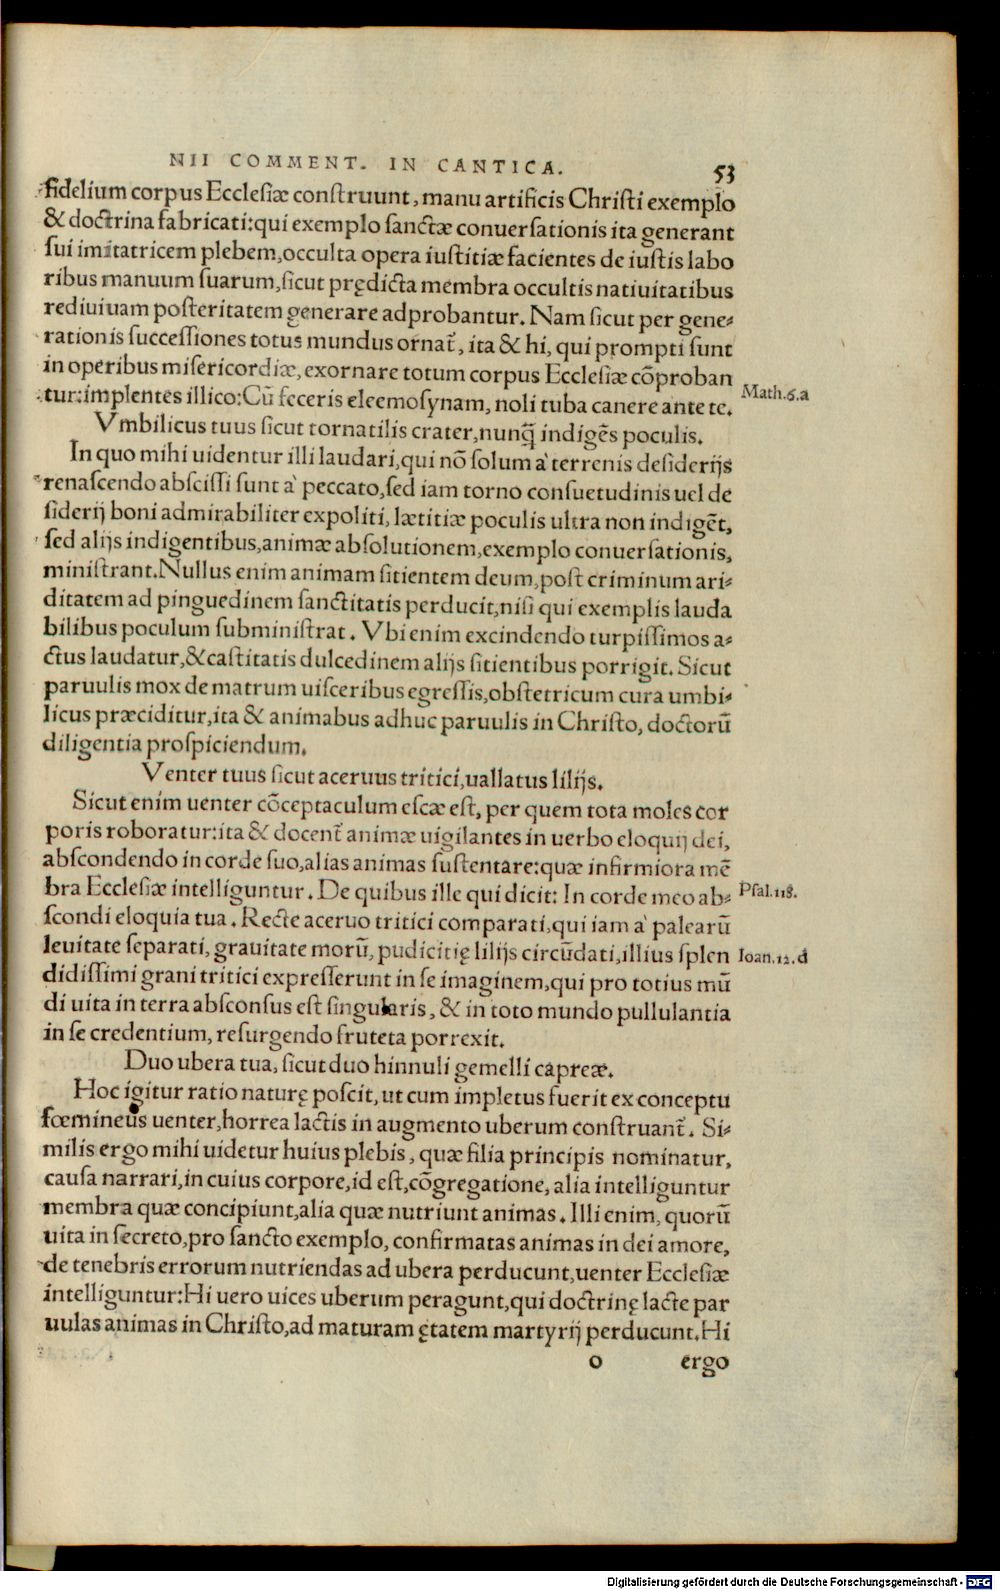 NII COMMENT. IN CANTICA. 53
fidelium corpus Ecclesiæ construunt, manu artificis Christi exemplo
& doctrina fabricati: qui exemplo sanctæ conuersationis ita generant
sui imitatricem plebem, occulta opera iustitiæ facientes de iustis labo
ribus manuum suarum, sicut prędicta membra occultis natiuitatibus
rediuiuam posteritatem generare adprobantur. Nam sicut per gene-
rationis successiones totus mundus ornat̃, ita & hi, qui prompti sunt
in operibus misericordiæ, exornare totum corpus Ecclesiæ cõproban
tur: implentes illico: Cũ feceris eleemosynam, noli tuba canere ante te. Math.6.a
Vmbilicus tuus sicut tornatilis crater, nunq̃ indigẽs poculis.
In quo mihi uidentur illi laudari, qui nõ solum à terrenis desiderijs
renascendo abscissi sunt à peccato, sed iam torno consuetudinis uel de
siderij boni admirabiliter expoliti, lætitiæ poculis ultra non indigẽt,
sed alijs indigentibus, animæ absolutionem, exemplo conuersationis,
ministrant. Nullus enim animam sitientem deum, post criminum ari-
ditatem ad pinguedinem sanctitatis perducit, nisi qui exemplis lauda
bilibus poculum subministrat. Vbi enim excindendo turpissimos a-
ctus laudatur, & castitatis dulcedinem alijs sitientibus porrigit. Sicut
paruulis mox de matrum uisceribus egressis, obstetricum cura umbi-
licus præciditur, ita & animabus adhuc paruulis in Christo, doctorũ
diligentia prospiciendum.
Venter tuus sicut aceruus tritici, uallatus lilijs.
Sicut enim uenter cõceptaculum escæ est, per quem tota moles cor
poris roboratur: ita & docent̃ animæ uigilantes in uerbo eloquij dei,
abscondendo in corde suo, alias animas sustentare: quæ infirmiora mẽ
bra Ecclesiæ intelliguntur. De quibus ille qui dicit: In corde meo ab- Psal.118.
scondi eloquia tua. Recte aceruo tritici comparati, qui iam à palearũ
leuitate separati, grauitate morũ, pudicitię lilijs circũdati, illius splen Ioan.12.d
didissimi grani tritici expresserunt in se imaginem, qui pro totius mũ
di uita in terra absconsus est singularis, & in toto mundo pullulantia
in se credentium, resurgendo fruteta porrexit.
Duo ubera tua, sicut duo hinnuli gemelli capreæ.
Hoc igitur ratio naturę poscit, ut cum impletus fuerit ex conceptu
fœmineus uenter, horrea lactis in augmento uberum construant̃. Si-
milis ergo mihi uidetur huius plebis, quæ filia principis nominatur,
causa narrari, in cuius corpore, id est, cõgregatione, alia intelliguntur
membra quæ concipiunt, alia quæ nutriunt animas. Illi enim, quorũ
uita in secreto, pro sancto exemplo, confirmatas animas in dei amore,
de tenebris errorum nutriendas ad ubera perducunt, uenter Ecclesiæ
intelliguntur: Hi uero uices uberum peragunt, qui doctrinę lacte par
uulas animas in Christo, ad maturam ętatem martyrij perducunt. Hi
o ergo
Digitalisierung gefördert durch die Deutsche Forschungsgemeinschaft - DFG